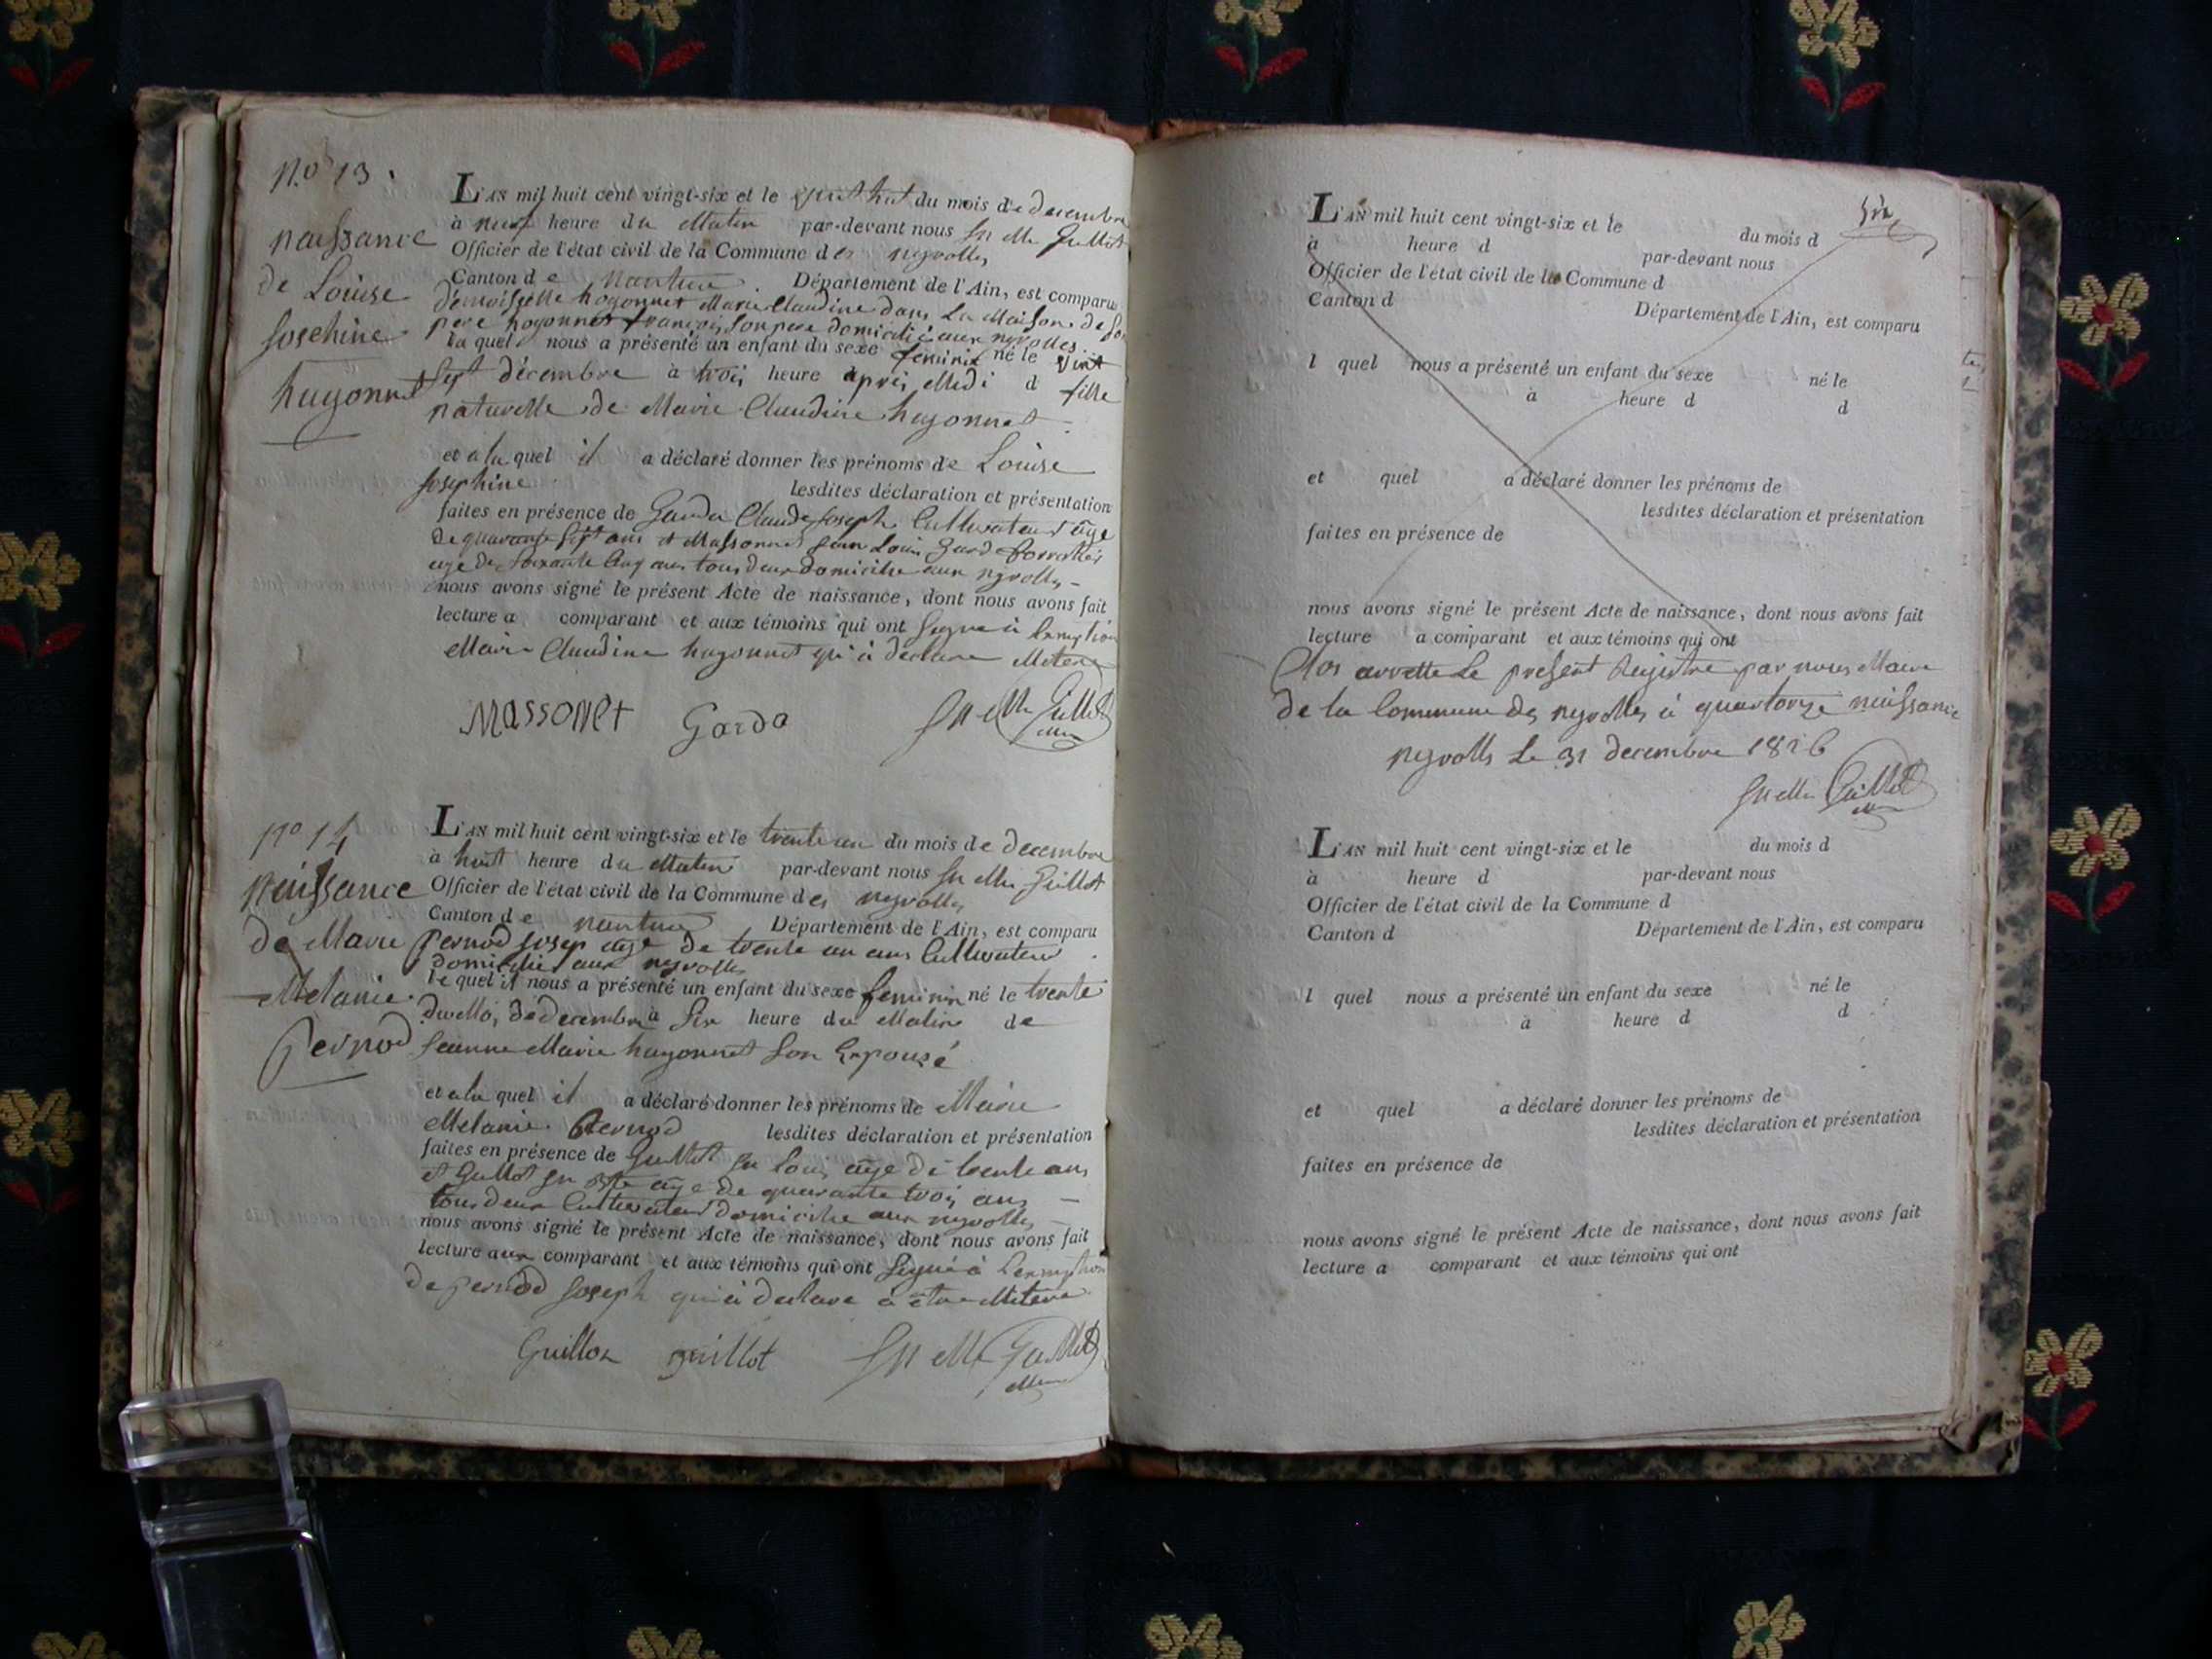 n.o 13.
naissance
de Louise
Josephine
hugonnet
L'AN mil huit cent vingt-six et le vint huit du mois de decembre
à neuf heure du Matin par-devant nous Jn Me Guillot
Officier de l'état civil de la Commune des neyrolles
Canton de nantua. Département de l'Ain, est comparu
demoiselle hogonnet Marie Claudine dans La Maison de Son
pere hogonnet françois Son pere domicilié aux neyrolles
la quel nous a présenté un enfant du sexe feminin né le vint
Sept décembre à trois heure après Midi d fille
naturelle de Marie Claudine hugonnet
et a la quel il a déclaré donner les prénoms de Louise
Josephine lesdites déclaration et présentation
faites en présence de Garda Claude Joseph Cultivateur âge
de quarante Sept ans et Massonnet jean Louis Garde forretier
age de Soixante Cinq ans tous deux domicilie aux neyrolles
nous avons signé le présent Acte de naissance, dont nous avons fait
lecture a comparant et aux témoins qui ont Signe à Lexeption
Marie Claudine hugonnet qui à declare
Massonet Garda Jn Me Guillot
no 14
naissance
de Marie
Melanie
pernod
L'AN mil huit cent vingt-six et le trente un du mois de decembre
à huit heure du Matin par-devant nous Jn Me Guillot
Officier de l'état civil de la Commune des neyrolles
Canton de nantua Département de l'Ain, est comparu
pernod Josep age de trente un ans Cultivateur
domicilié aux neyrolles
le quel il nous a présenté un enfant du sexe feminin né le trente
du Mois de decembre à Six heure du Matin de
Jeanne Marie hugonnet Son Expousé
et a la quel il a déclaré donner les prénoms de Marie
Melanie Pernod lesdites déclaration et présentation
faites en présence de Guillot Jn Louis âge de trente ans
et Guillot Jn Bte age de quarante trois ans
tous deux Cultivateur domicilie aux neyrolles
nous avons signé le présent Acte de naissance, dont nous avons fait
lecture aux comparant et aux témoins qui ont Signé à Lexeption
de pernod Joseph qui à declare
Guillot guillot Jn Me Guillot
L'AN mil huit cent vingt-six et le du mois d
à heure d par-devant nous
Officier de l'état civil de la Commune d
Canton d Département de l'Ain, est comparu
l quel nous a présenté un enfant du sexe né le
à heure d d
et quel a déclaré donner les prénoms de
lesdites déclaration et présentation
faites en présence de
nous avons signé le présent Acte de naissance, dont nous avons fait
lecture a comparant et aux témoins qui ont
Clos arretté Le present Registre par nous Maire
de la Commune des neyrolles à quartorze naissance
neyrolls Le 31 decembre 1826
Jn Me Guillot
L'AN mil huit cent vingt-six et le du mois d
à heure d par-devant nous
Officier de l'état civil de la Commune d
Canton d Département de l'Ain, est comparu
l quel nous a présenté un enfant du sexe né le
à heure d d
et quel a déclaré donner les prénoms de
lesdites déclaration et présentation
faites en présence de
nous avons signé le présent Acte de naissance, dont nous avons fait
lecture a comparant et aux témoins qui ont